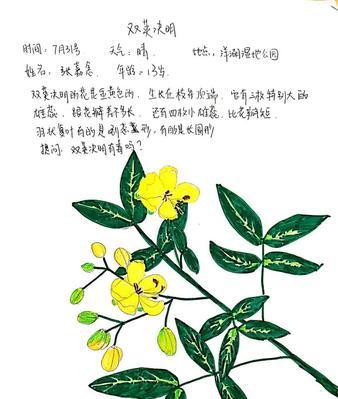 双荚决明
时间：7月31号 天气：晴 地点：洋湖湿地公园
姓名：张嘉 年龄：13岁
双荚决明的花是金黄色的，生长在枝条顶端，它有三枚特别大的
雄蕊，跟花瓣差不多长，还有四枚小雄蕊，比花瓣短。
羽状复叶有的是倒卵形，有的是长圆形
提问：双荚决明有毒吗？